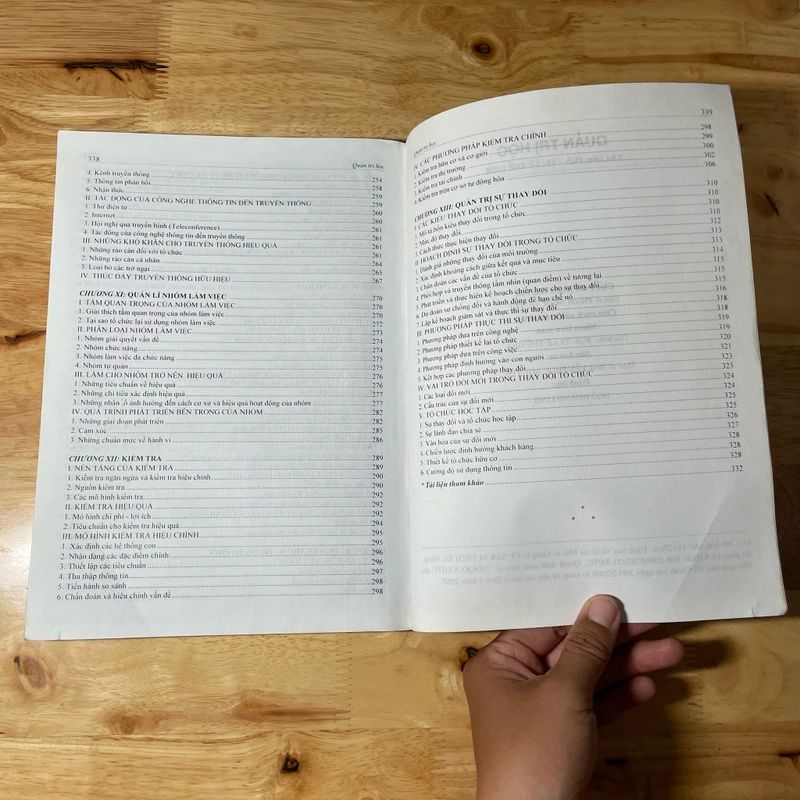 338
Quản trị học
4. Kênh truyền thông 254
5. Thông tin phản hồi 258
6. Nhận thức 259
II. TÁC ĐỘNG CỦA CÔNG NGHỆ THÔNG TIN ĐẾN TRUYỀN THÔNG 260
1. Thư điện tử 260
2. Internet 260
3. Hội nghị qua truyền hình (Teleconference) 261
4. Tác động của công nghệ thông tin đến truyền thông 261
III. NHỮNG KHÓ KHĂN CHO TRUYỀN THÔNG HIỆU QUẢ 261
1. Những rào cản đối với tổ chức 261
2. Những rào cản cá nhân 264
3. Loại bỏ các trở ngại 265
IV. THÚC ĐẨY TRUYỀN THÔNG HỮU HIỆU 267
CHƯƠNG XI: QUẢN LÍ NHÓM LÀM VIỆC 270
I. TẦM QUAN TRỌNG CỦA NHÓM LÀM VIỆC 270
1. Giải thích tầm quan trọng của nhóm làm việc 270
2. Tại sao tổ chức lại sử dụng nhóm làm việc 272
II. PHÂN LOẠI NHÓM LÀM VIỆC 273
1. Nhóm giải quyết vấn đề 274
2. Nhóm chức năng 274
3. Nhóm làm việc đa chức năng 275
4. Nhóm tự quản 275
III. LÀM CHO NHÓM TRỞ NÊN HIỆU QUẢ 276
1. Những tiêu chuẩn về hiệu quả 276
2. Những chỉ tiêu xác định hiệu quả 276
3. Những nhân tố ảnh hưởng đến cách cư xử và hiệu quả hoạt động của nhóm 277
IV. QUÁ TRÌNH PHÁT TRIỂN BÊN TRONG CỦA NHÓM 282
1. Những giai đoạn phát triển 282
2. Cảm xúc 285
3. Những chuẩn mực về hành vi 286
CHƯƠNG XII: KIỂM TRA 289
I. NỀN TẢNG CỦA KIỂM TRA 289
1. Kiểm tra ngăn ngừa và kiểm tra hiệu chỉnh 290
2. Nguồn kiểm tra 290
3. Các mô hình kiểm tra 292
II. KIỂM TRA HIỆU QUẢ 292
1. Mô hình chi phí - lợi ích 292
2. Tiêu chuẩn cho kiểm tra hiệu quả 294
III. MÔ HÌNH KIỂM TRA HIỆU CHỈNH 295
1. Xác định các hệ thống con 296
2. Nhận dạng các đặc điểm chính 296
3. Thiết lập các tiêu chuẩn 296
4. Thu thập thông tin 297
5. Tiến hành so sánh 298
6. Chẩn đoán và hiệu chỉnh vấn đề 298
Quản trị học
339
IV. CÁC PHƯƠNG PHÁP KIỂM TRA CHÍNH 298
1. Kiểm tra hữu cơ và cơ giới 299
2. Kiểm tra thị trường 300
3. Kiểm tra tài chính 302
4. Kiểm tra trên cơ sở tự động hóa 306
CHƯƠNG XIII: QUẢN TRỊ SỰ THAY ĐỔI 310
I. CÁC KIỂU THAY ĐỔI TỔ CHỨC 310
1. Mô tả bốn kiểu thay đổi trong tổ chức 310
2. Mức độ thay đổi 312
3. Cách thức thực hiện thay đổi 313
II. HOẠCH ĐỊNH SỰ THAY ĐỔI TRONG TỔ CHỨC 313
1. Đánh giá những thay đổi của môi trường 314
2. Xác định khoảng cách giữa kết quả và mục tiêu 315
3. Chẩn đoán các vấn đề của tổ chức 315
4. Phối hợp và truyền thông tầm nhìn (quan điểm) về tương lai 315
5. Phát triển và thực hiện kế hoạch chiến lược cho sự thay đổi 316
6. Dự đoán sự chống đối và hành động để hạn chế nó 316
7. Lập kế hoạch giám sát và thực thi sự thay đổi 318
III. PHƯƠNG PHÁP THỰC THI SỰ THAY ĐỔI 318
1. Phương pháp dựa trên công nghệ 319
2. Phương pháp thiết kế lại tổ chức 319
3. Phương pháp dựa trên công việc 320
4. Phương pháp định hướng vào con người 321
5. Kết hợp các phương pháp thay đổi 323
IV. VAI TRÒ ĐỔI MỚI TRONG THAY ĐỔI TỔ CHỨC 323
1. Các loại đổi mới 324
2. Cấu trúc của sự đổi mới 324
V. TỔ CHỨC HỌC TẬP 325
1. Sự thay đổi và tổ chức học tập 325
2. Sự lãnh đạo chia sẻ 326
3. Văn hóa của sự đổi mới 327
4. Chiến lược định hướng khách hàng 328
5. Thiết kế tổ chức hữu cơ 328
6. Cường độ sử dụng thông tin 328
* Tài liệu tham khảo 332
* * *